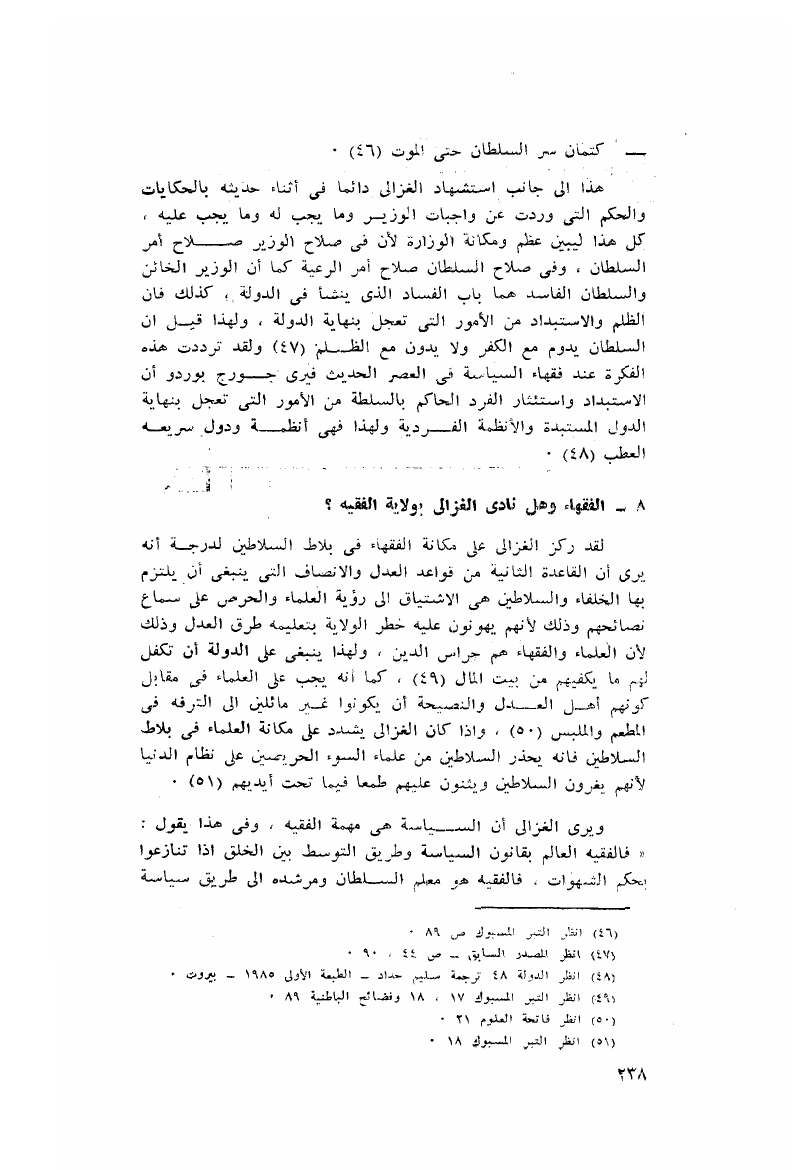 — كتمان سر السلطان حتى الموت (٤٦) ٠
هذا الى جانب استشهاد الغزالى دائما فى أثناء حديثه بالحكايات
والحكم التى وردت عن واجبات الوزيـر وما يجب له وما يجب عليه ،
كل هذا ليبين عظم ومكانة الوزارة لأن فى صلاح الوزير صـــلاح أمر
السلطان ، وفى صلاح السلطان صلاح أمر الرعية كما أن الوزير الخائن
والسلطان الفاسد هما باب الفساد الذى ينشأ فى الدولة ، كذلك فان
الظلم والاستبداد من الأمور التى تعجل بنهاية الدولة ، ولهذا قيــل ان
السلطان يدوم مع الكفر ولا يدون مع الظـــلم (٤٧) ولقد ترددت هذه
الفكرة عند فقهاء السياسة فى العصر الحديث فيرى جـــورج بوردو أن
الاستبداد واستئثار الفرد الحاكم بالسلطة من الأمور التى تعجل بنهاية
الدول المستبدة والأنظمة الفـــردية ولهذا فهى أنظمـــة ودول سريعـــه
العطب (٤٨) ٠
٨ ـ الفقهاء وهل نادى الغزالى بولاية الفقيه ؟
لقد ركز الغزالى على مكانة الفقهاء فى بلاط السلاطين لدرجـة أنه
يرى أن القاعدة الثانية من قواعد العدل والانصاف التى ينبغى أن يلتزم
بها الخلفاء والسلاطين هى الاشتياق الى رؤية العلماء والحرص على سـماع
نصائحهم وذلك لأنهم يهونون عليه خطر الولاية بتعليمه طرق العدل وذلك
لأن العلماء والفقهاء هم حراس الدين ، ولهذا ينبغى على الدولة أن تكفل
لهم ما يكفيهم من بيت المال (٤٩) ، كما أنه يجب على العلماء فى مقابل
كونهم أهـل العـــدل والنصيحة أن يكونوا غـير مائلين الى الترفه فى
المطعم والملبس (٥٠) ، واذا كان الغزالى يشدد على مكانة العلماء فى بلاط
السلاطين فانه يحذر السلاطين من علماء السوء الحريصين على نظام الدنيا
لأنهم يغرون السلاطين ويثنون عليهم طمعا فيما تحت أيديهم (٥١) ٠
ويرى الغزالى أن الســـياسة هى مهمة الفقيه ، وفى هذا يقول :
« فالفقيه العالم بقانون السياسة وطريق التوسط بين الخلق اذا تنازعوا
بحكم الشهوات ، فالفقيه هو معلم الســلطان ومرشده الى طريق سياسة
(٤٦) انظر التبر المسبوك ص ٨٩ ٠
(٤٧) انظر المصدر السابق ـ ص ٤٤ ، ٩٠ ٠
(٤٨) انظر الدولة ٤٨ ترجمة سليم حداد ـ الطبعة الأولى ١٩٨٥ ـ بيروت ٠
(٤٩) انظر التبر المسبوك ١٧ ، ١٨ وفضائح الباطنية ٨٩ ٠
(٥٠) انظر فاتحة العلوم ٢١ ٠
(٥١) انظر التبر المسبوك ١٨ ٠
٢٣٨